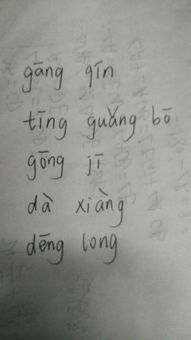 gāng qín
tīng guǎng bō
gōng jī
dà xiàng
dēng long